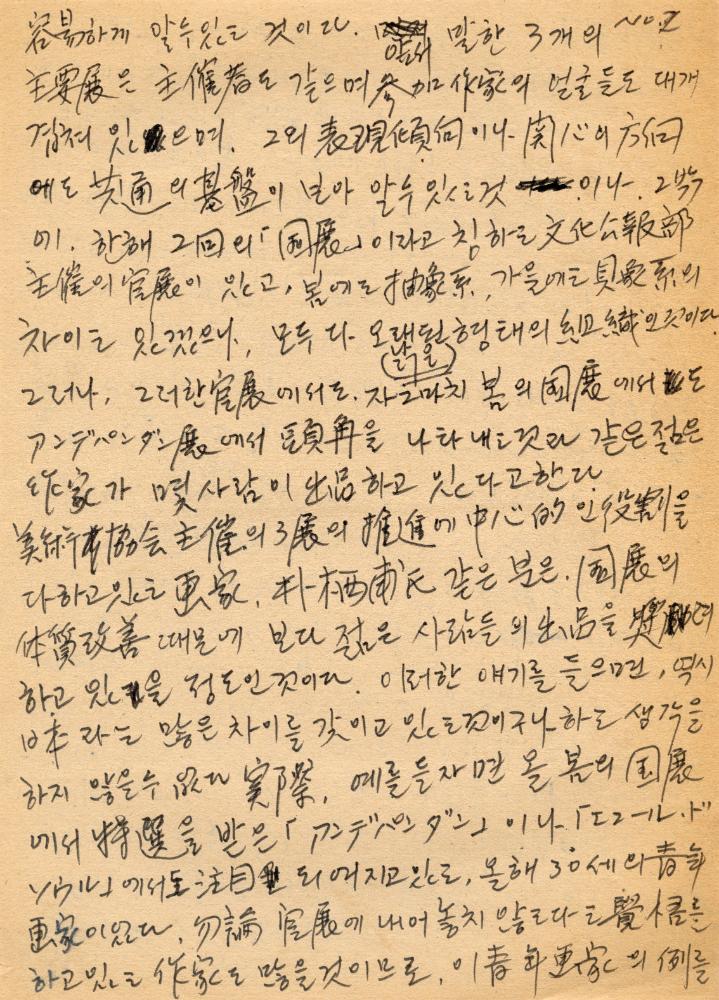 容易하게 알수있는 것이다. 앞서 말한 3개의 No.2
主要展은 主催者도 같으며 参加作家의 얼굴들도 대개
겹쳐 있으며, 그의 表現傾向이나 関心의 方向
에도 共通의 基盤이 보아 알수있는것 이나. 그밖
에. 한해 2回의「国展」이라고 칭하는 文化公報部
主催의 官展이 있고, 봄에는 抽象系, 가을에는 具象系의
차이는 있겠으나, 모두 다 오래된 낡은 형태의 組織인것이다
그러나, 그러한 官展에서도. 자그마치 봄의 国展에서도
アンデパンダン展에서 頭角을 나타내는것과 같은 젊은
作家가 몇사람이 出品하고 있다고한다
美術協会 主催의 3展의 推進에 中心的인 役割을
다하고있는 画家, 朴栖甫氏 같은 분은. 国展의
体質改善 때문에 보다 젊은 사람들의 出品을 奨励
하고 있을 정도인것이다. 이러한 얘기를 들으면, 역시
日本라는 많은 차이를 갖이고 있는것이구나 하는 생각을
하지 않을수 없다 実際, 예를들자면 올 봄의 国展
에서 特選을 받은「アンデパンダン」이나「エコール・ド
ソウル」에서도 注目 되여지고있는, 올해 30세의 青年
画家이있다. 勿論 官展에 내어놓치 않는다는 覺悟를
하고있는 作家도 많을것이므로, 이 青年画家의 例를